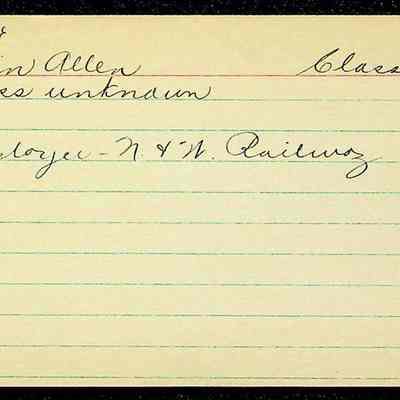 in Allen Class
ss unknown
loyer - N. & W. Railway